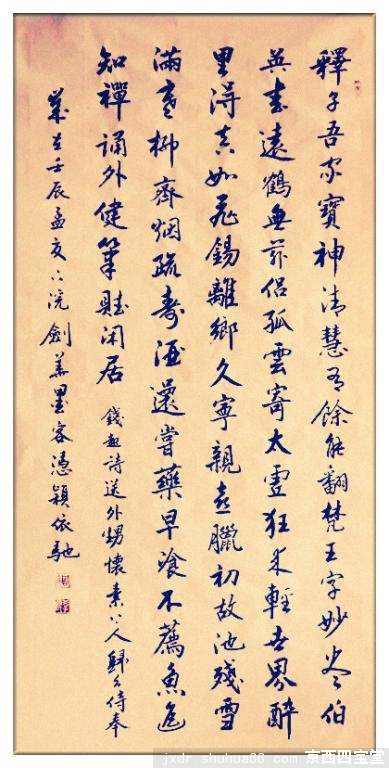 釋子吾家寶神清慧有餘能翻梵王字妙尽伯
英書遠鶴無前侶孤雲寄太虛狂来輕世界醉
里得真如飛錫離鄉久寧親喜臘初故池殘雪
滿寒柳齊烟疏壽酒還嘗藥早飡不薦魚遥
知禪誦外健筆賦闲居
錢起詩送外甥懷素上人歸乡侍奉
歲在壬辰孟夏上浣劍墨客憑穎依馳
jxdr.shuhua66.com 京西四宝堂